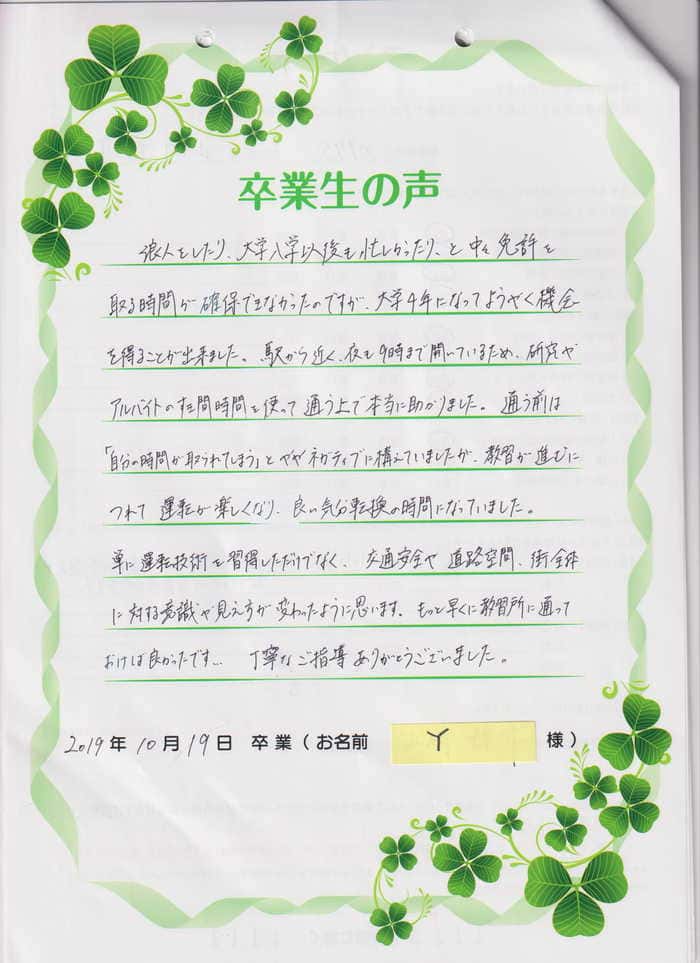 卒業生の声
浪人をしたり、大学入学以後も忙しかったり、と中々免許を
取る時間が確保できなかったのですが、大学4年になってようやく機会
を得ることが出来ました。駅から近く、夜も9時まで開いているため、研究や
アルバイトのすき間時間を使って通う上で本当に助かりました。通う前は
「自分の時間が取られてしまう」とややネガティブに構えていましたが、教習が進むに
つれて運転が楽しくなり、良い気分転換の時間になっていました。
単に運転技術を習得しただけでなく、交通安全や道路空間、街全体
に対する意識や見え方が変わったように思います。もっと早くに教習所に通って
おけば良かったです… 丁寧なご指導ありがとうございました。
2019年10月19日 卒業(お名前 Y 様)